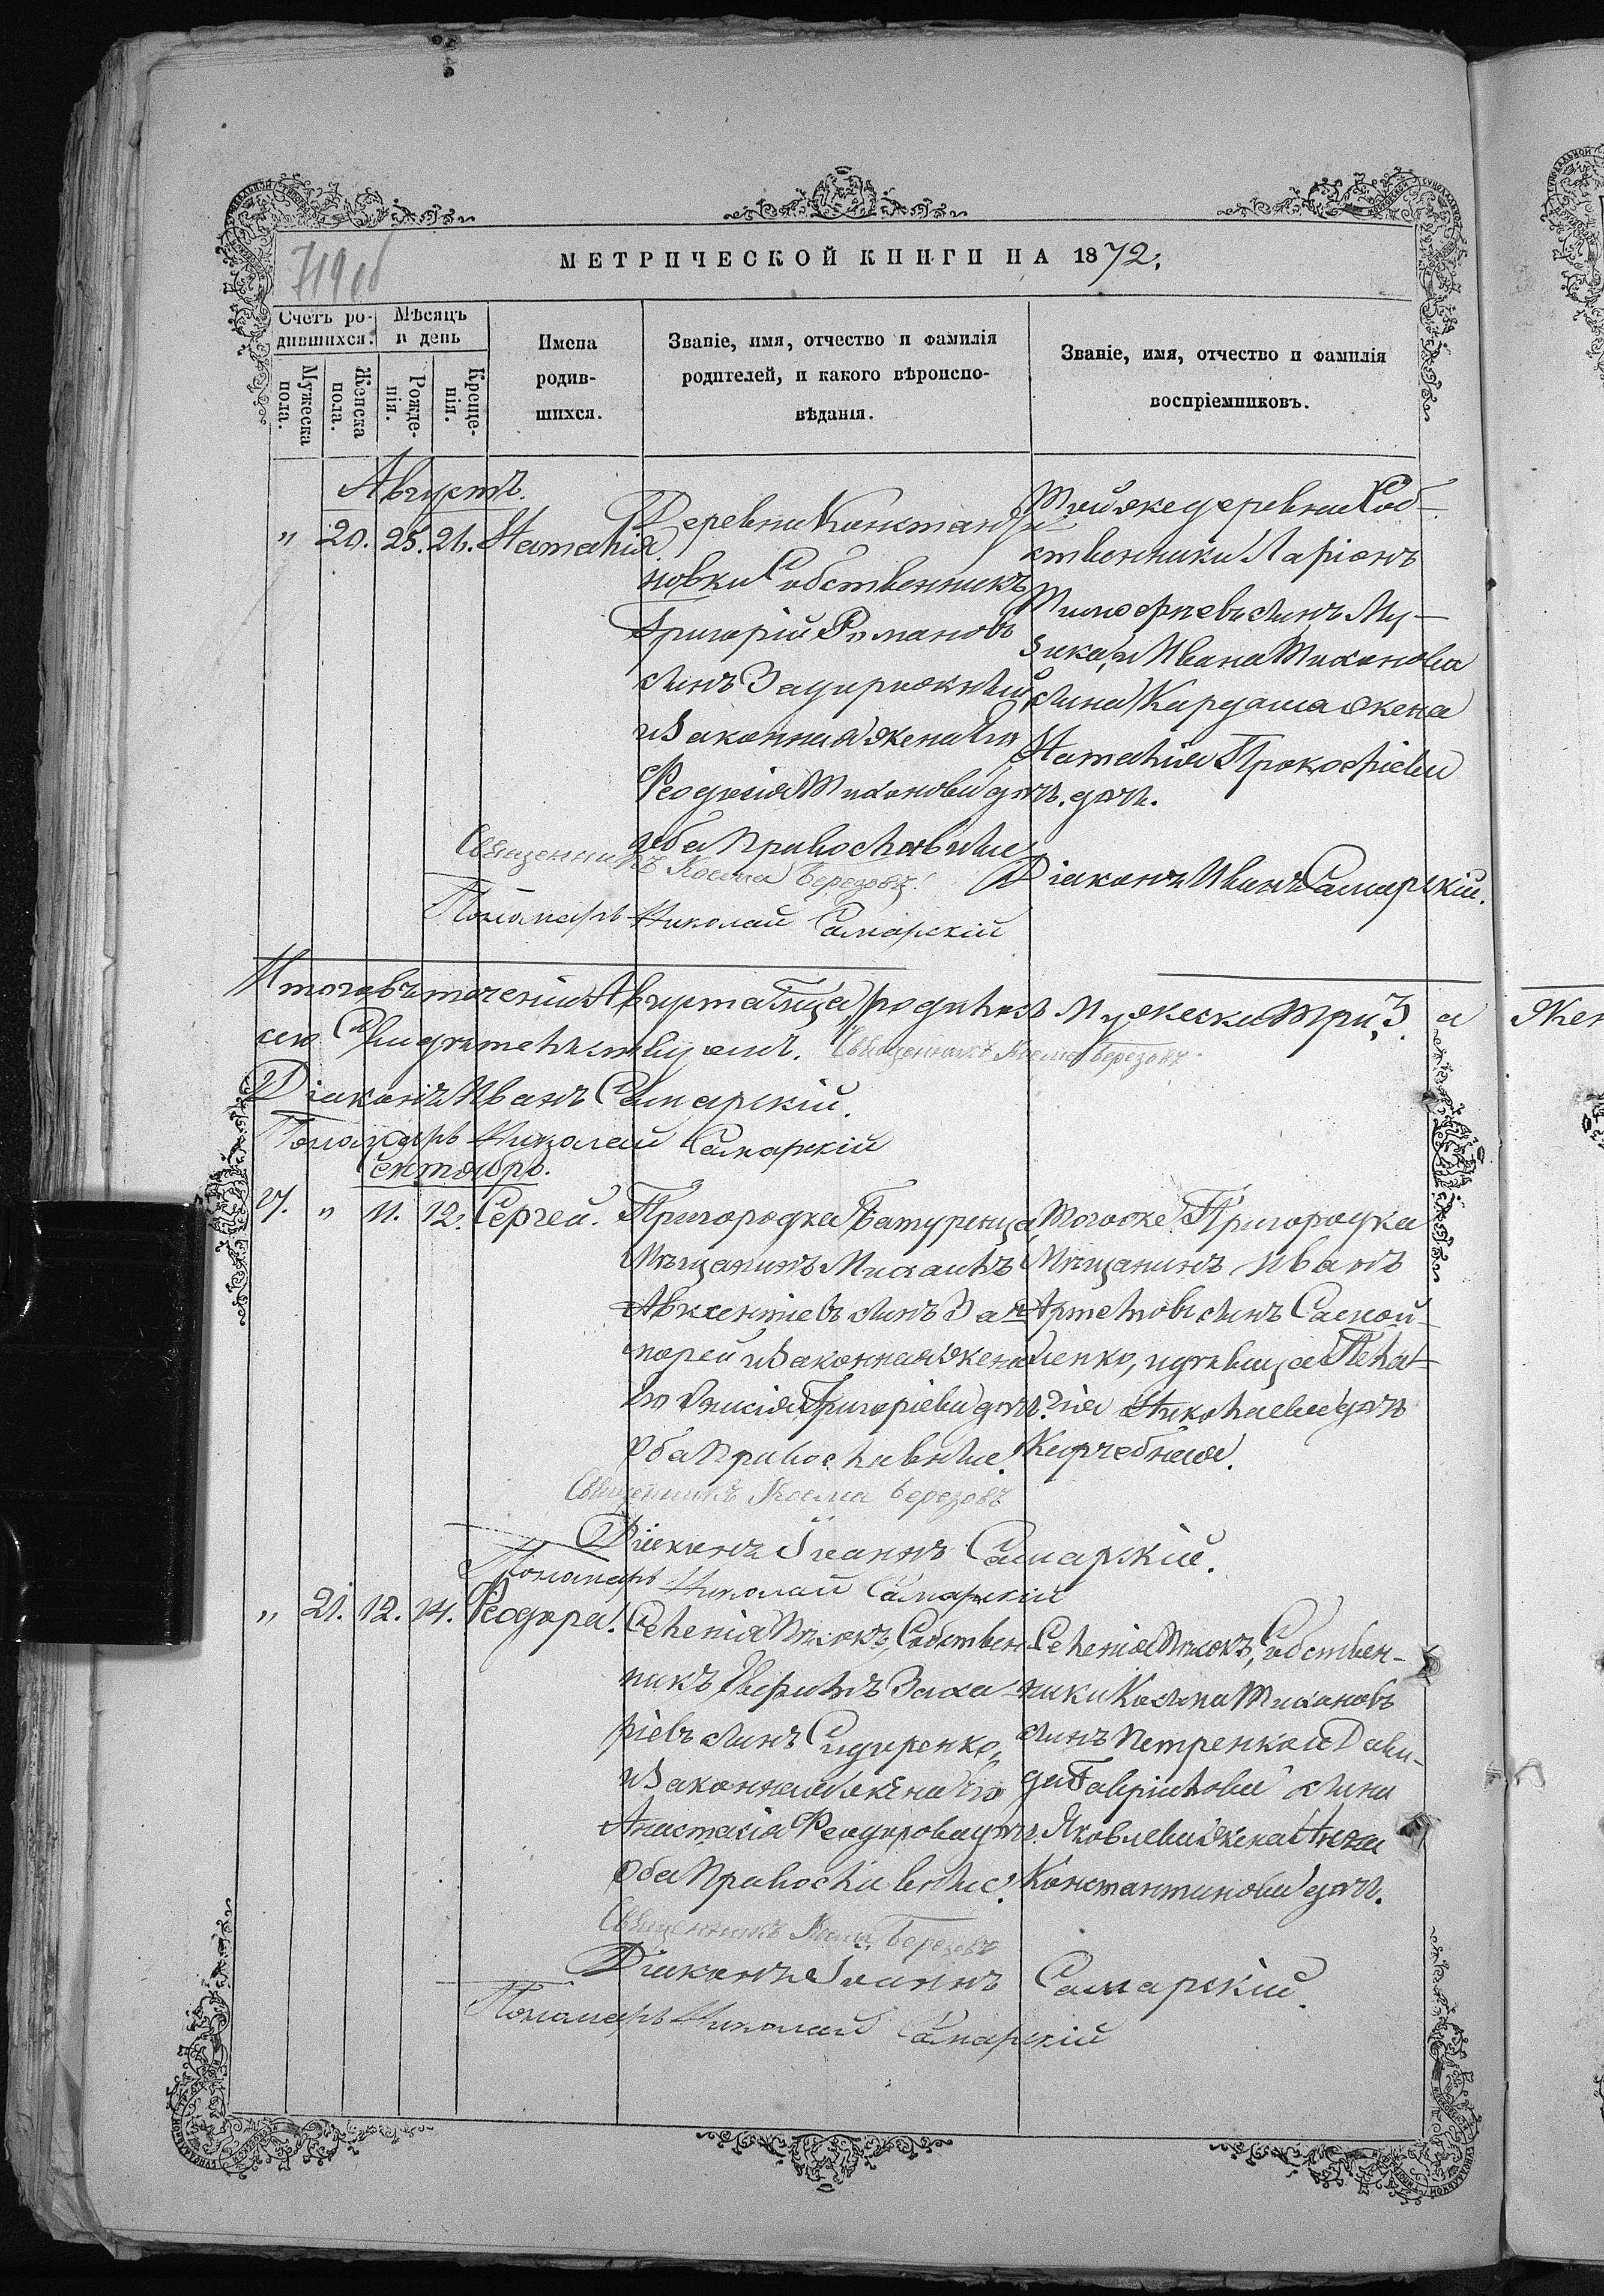 719 об
МЕТРИЧЕСКОЙ КНИГИ НА 1872,
Счетъ ро-
дившихся.
Мѣсяцъ
и день
Мужеска
пола.
Женска
пола.
Рожде-
нія.
Креще-
нія.
Имена
родив-
шихся.
Званіе, имя, отчество и фамилія
родителей, и какого вѣроиспо-
вѣданія.
Званіе, имя, отчество и фамилія
воспріемниковъ.
Августъ.
" 20. 25. 26. Наталія
Деревни Константи
новки Собственникъ
Григорій Романовъ
сынъ
и Законная жена Его
Феодосія Тихонова дочь.
оба православные
Той же деревни Соб-
ственники Ларіонъ
Тимофѣевъ сынъ Му-
зика, и Ивана Тихонова
сына Кардаша жена
Наталія Прокофіева
дочь.
Священникъ Косма Березовъ.
Діаконъ Иванъ Самарскій.
Пономарь Николай Самарскій
Итого въ теченіи Августа м-ца, родилось Мужеска Три, 3 а Жен
сею Свидѣтельствуемъ. Священникъ Косма Березовъ.
Діаконъ Иванъ Самарскій.
Пономарь Николай Самарскій
Сентябрь.
27. " 11. 12. Сергей.
Пригородка Батурина
Мѣщанинъ Михаилъ
Авксентіевъ сынъ За-
порей и Законная жена
Его Григоріева дочь.
Оба Православные.
Тогоже Пригородка
Мѣщанинъ Иванъ
Артемовъ сынъ Самой-
ленко, и дѣвица Пела-
гія Николаева дочь
Священникъ Косма Березовъ
Діаконъ Іоаннъ Самарскій.
Пономарь Николай Самарскій
" 21. 12. 14. Феодора.
Селенія Собствен-
никъ Заха-
ріевъ сынъ Сидоренко,
и Законная жена Его
Анастасія Феодорова дочь.
Оба Православные.
Селенія Собствен-
ники Косьма Тихоновъ
сынъ Петренко и Дави-
да Гаврилова сына
Яковлева жена Анна
Константинова дочь.
Священникъ Косма Березовъ
Діаконъ Іоаннъ Самарскій.
Пономарь Николай Самарскій